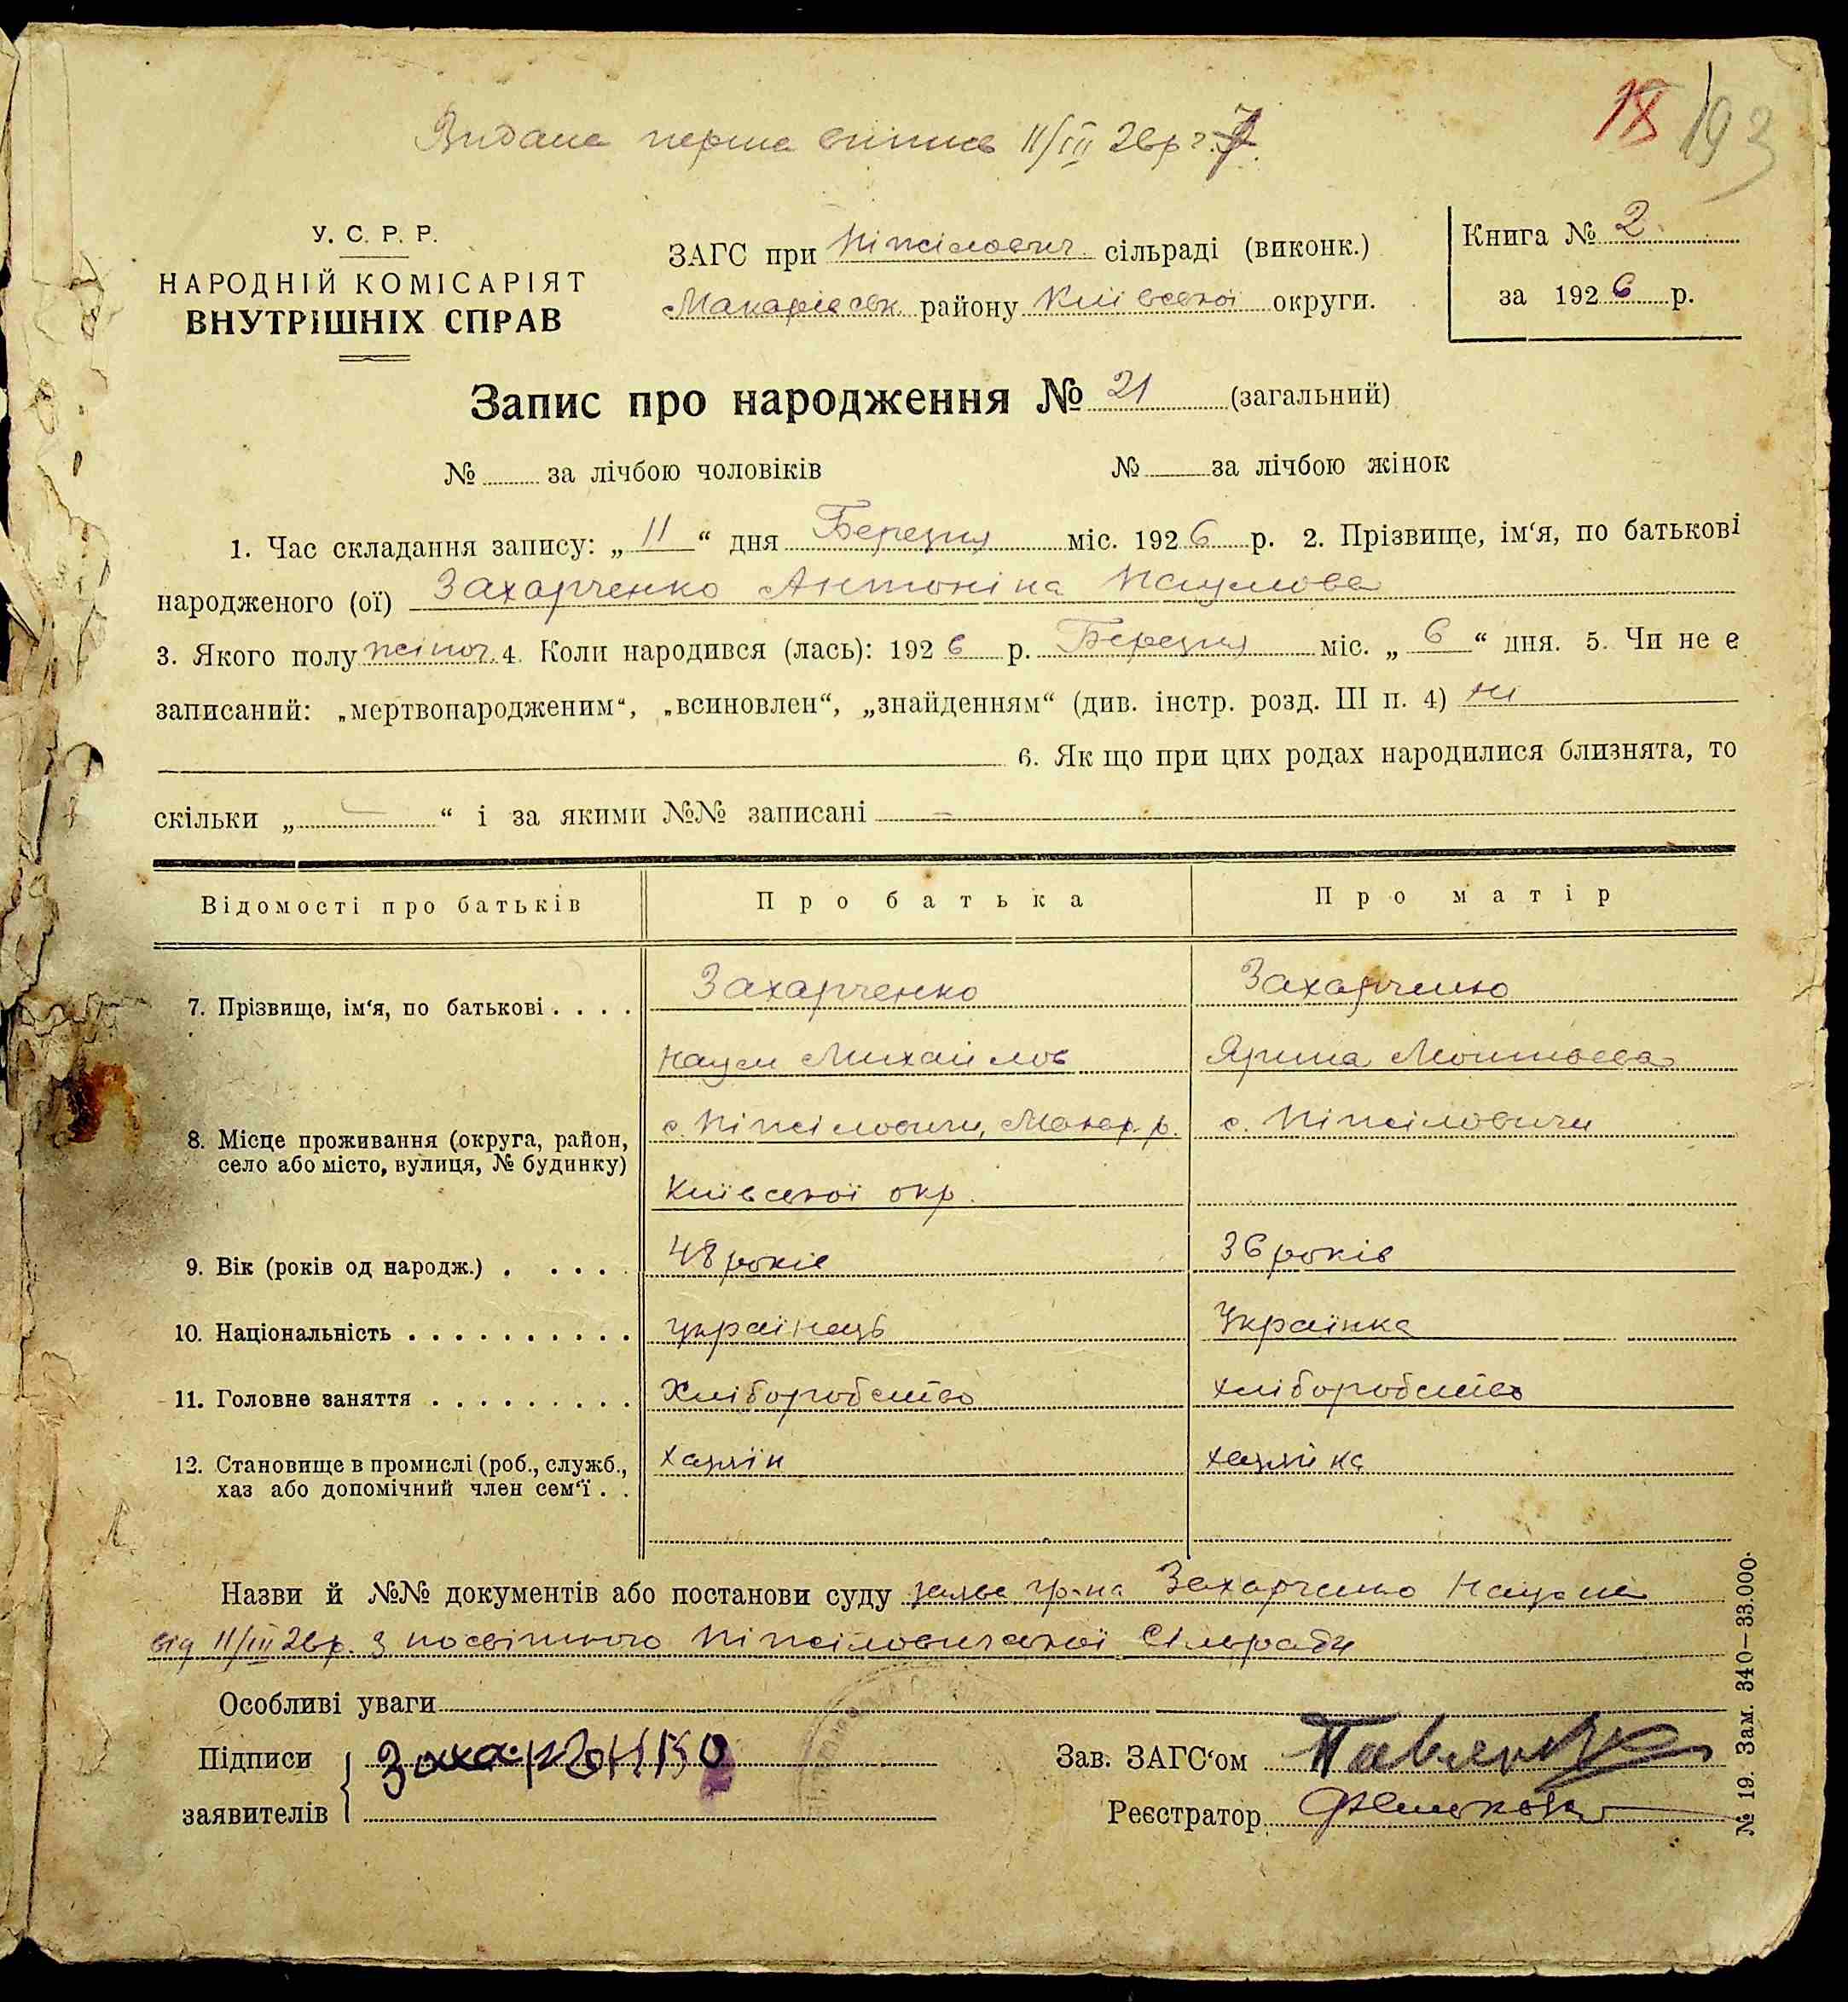 Видана перша випись 11/III 26р
18 193
У. С. Р. Р.
НАРОДНІЙ КОМІСАРІЯТ
ВНУТРІШНІХ СПРАВ
ЗАГС при Ніжілович. сільраді (виконк.)
Макарівськ. району Київської округи.
Книга № 2
за 1926 р.
Запис про народження № 21 (загальний)
№ за лічбою чоловіків № за лічбою жінок
1. Час складання запису: „11“ дня Березня міс. 1926 р. 2. Прізвище, ім‘я, по батькові
народженого (ої) Захарченко Антоніна Наумова
3. Якого полу жіноч. 4. Коли народився (лась): 1926 р. Березня міс. „6“ дня. 5. Чи не є
записаний: „мертвонародженим“, „всиновлен“, „знайденням“ (див. інстр. розд. III п. 4) ні
6. Як що при цих родах народилися близнята, то
скільки „ — “ і за якими №№ записані —
Відомості про батьків Про батька Про матір
7. Прізвище, ім‘я, по батькові . . . . Захарченко Захарченко
Наум Михайлов Ярина
8. Місце проживання (округа, район, с. Ніжіловичи, Макар. р. с. Ніжіловичи
село або місто, вулиця, № будинку)
Київської окр.
9. Вік (років од народж.) . . . . . 48 років 36 років
10. Національність . . . . . . . . . . українець Українка
11. Головне заняття . . . . . . . . . Хліборобство хліборобство
12. Становище в промислі (роб., служб., хазяїн хазяйка
хаз або допомічний член сем‘ї . .
Назви й №№ документів або постанови суду заява гр-на Захарченко Наума
від 11/III 26р. з посвідкою Ніжіловичської Сільради
Особливі уваги
Підписи Захарченко Зав. ЗАГС‘ом
заявителів Реєстратор
№ 19. Зам. 340–33.000.